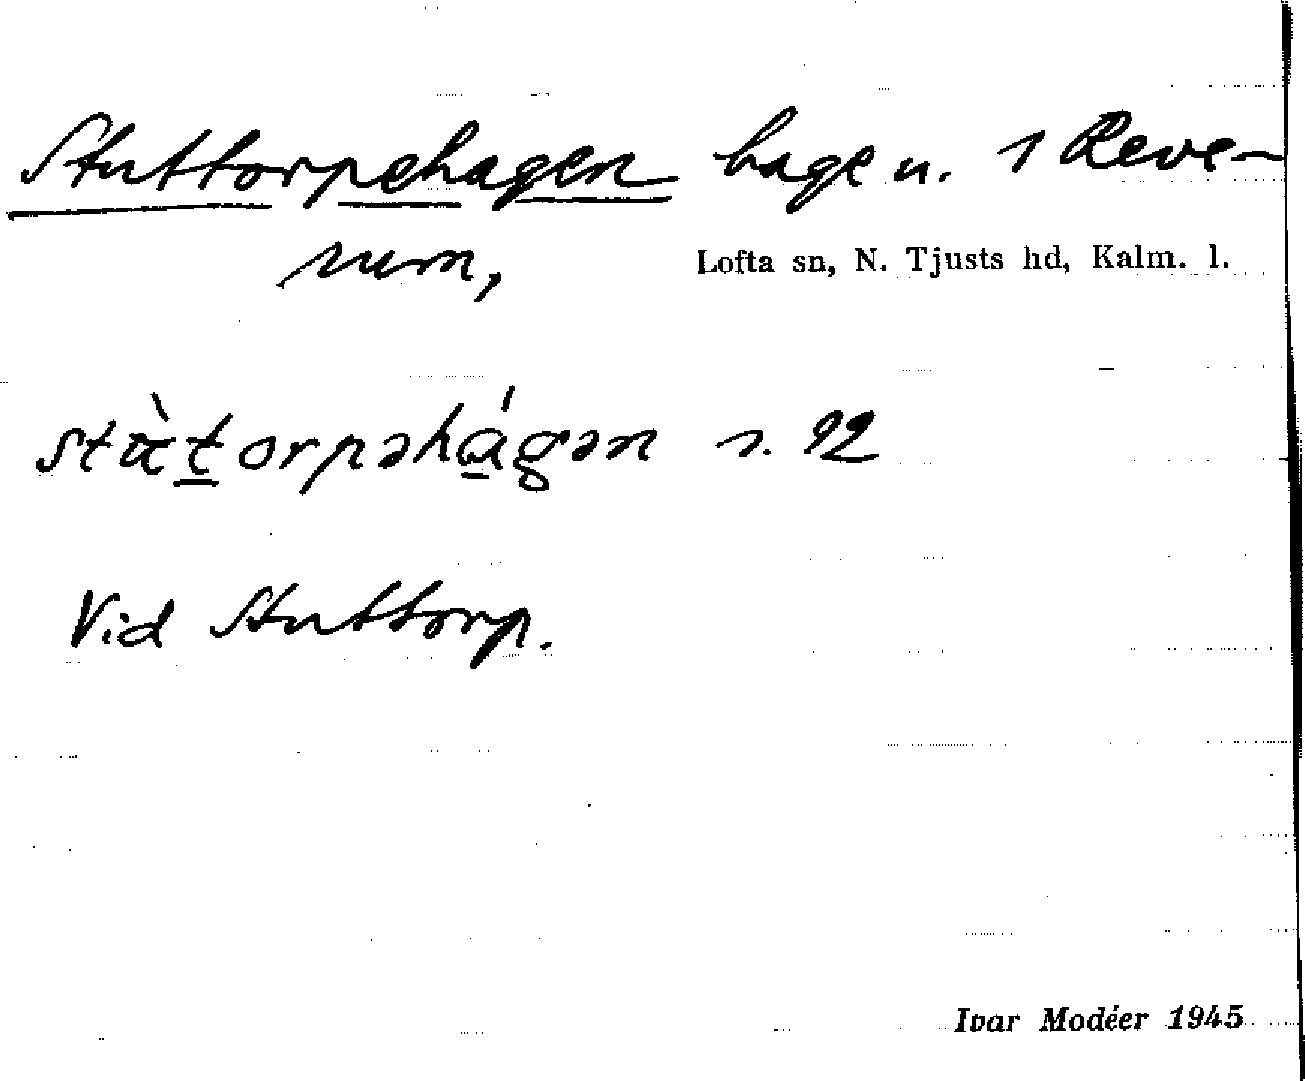 Stuttorpehagen hage u. 1 Reve-
rum,
Lofta sn, N. Tjusts hd, Kalm. l.
stɑ̀t̲orpəhɑ̲́gən s. 92
Vid Stuttorp.
Ivar Modéer 1945